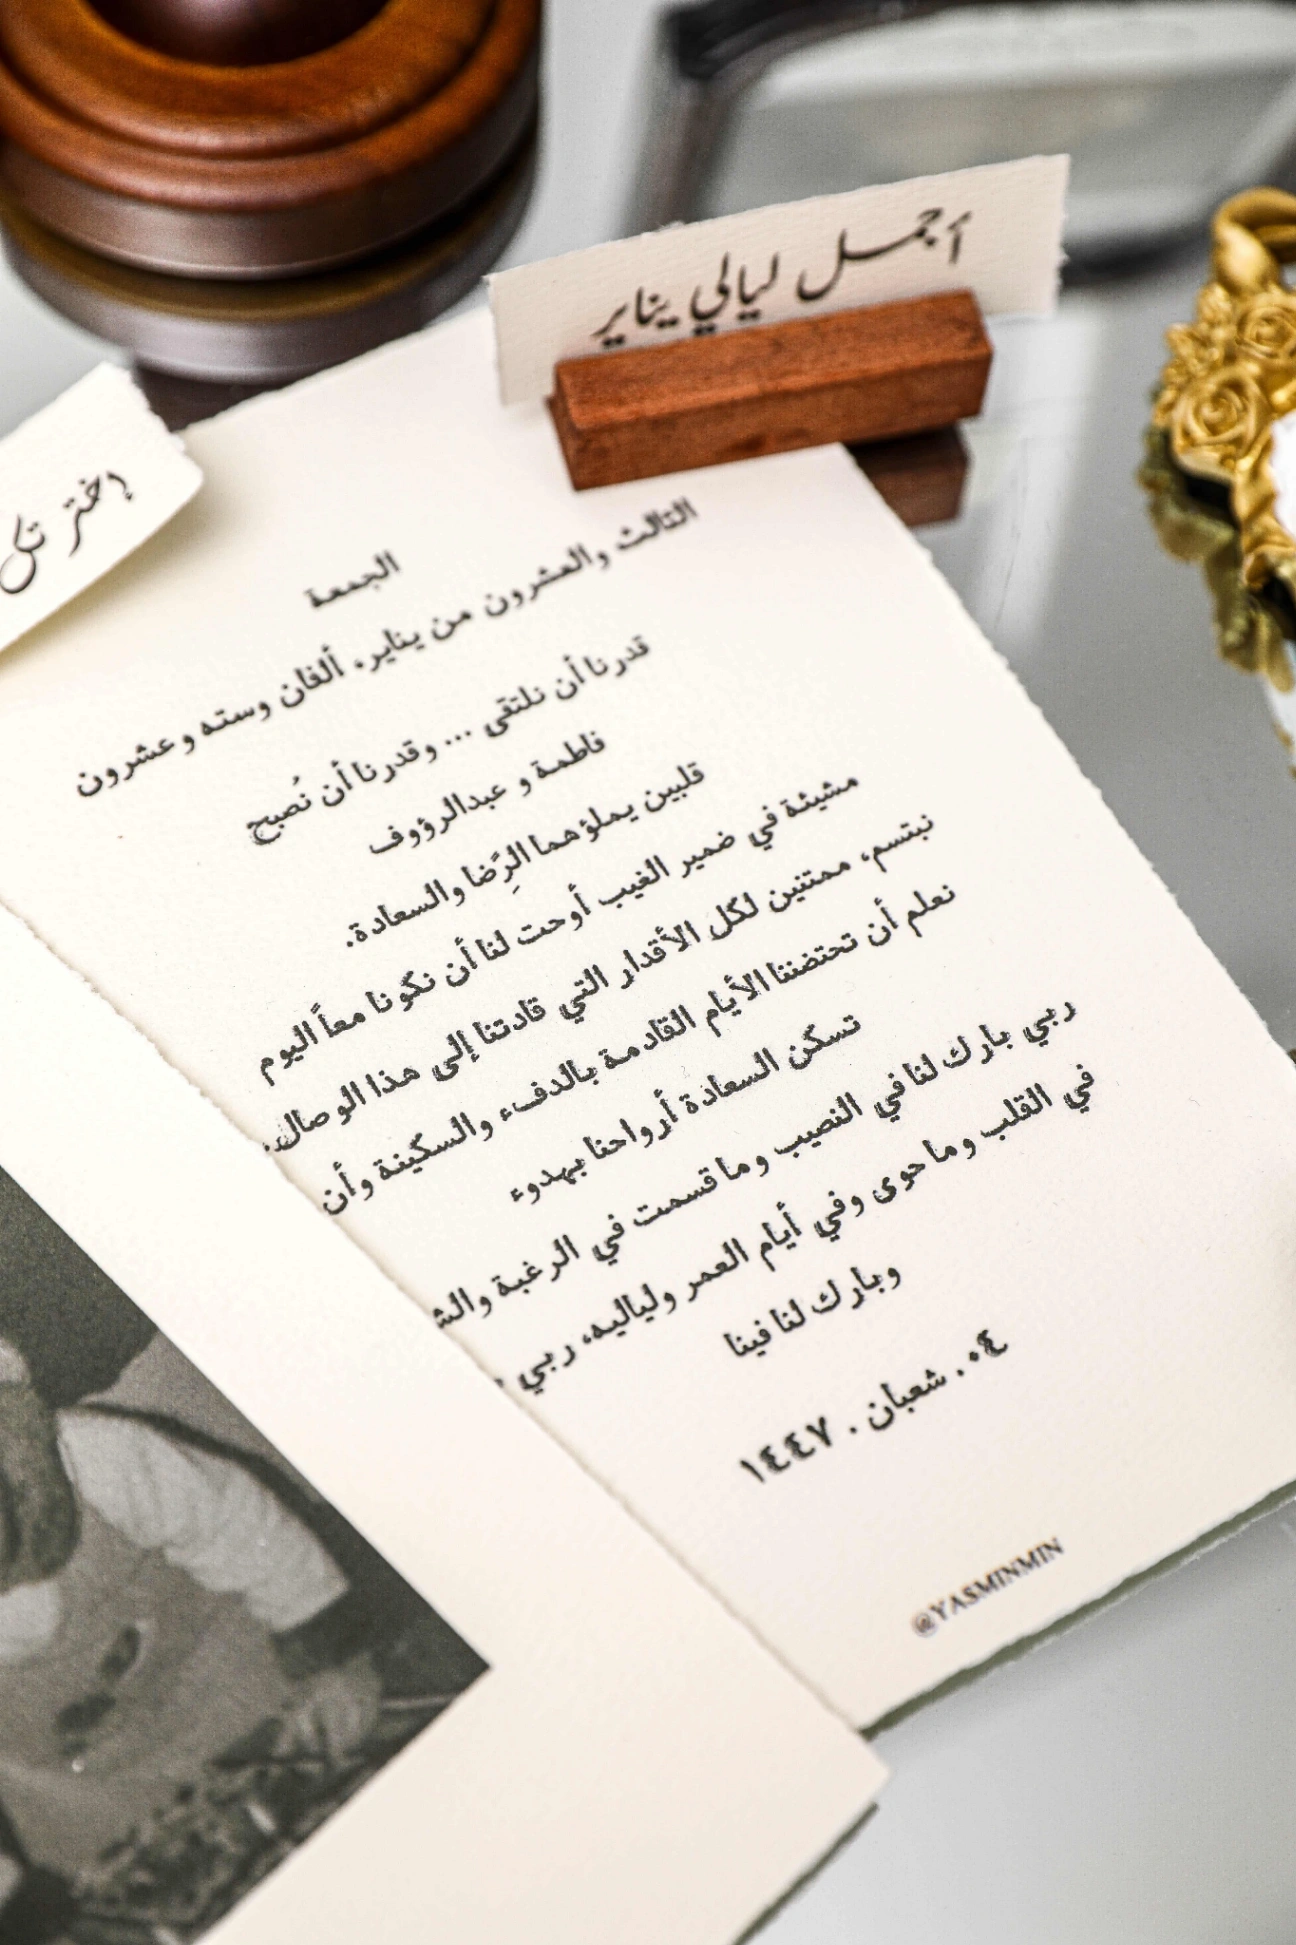 أجمل ليالي يناير
إختر تك
الجمعة
الثالث والعشرون من يناير. ألفان وسته وعشرون
قدرنا أن نلتقي ... وقدرنا أن نُصبح
فاطمة و عبدالرؤوف
قلبين يملؤهما الرِّضا والسعادة.
مشيئة في ضمير الغيب أوحت لنا أن نكونا معاً اليوم
نبتسم، ممتنين لكل الأقدار التي قادتنا إلى هذا الوصال.
نعلم أن تحتضننا الأيام القادمة بالدفء والسكينة وأن
تسكن السعادة أرواحنا بهدوء
ربي بارك لنا في النصيب وما قسمت في الرغبة
في القلب وما حوى وفي أيام العمر ولياليه، ربي
وبارك لنا فينا
٠٤ . شعبان . ١٤٤٧
@YASMINMIN